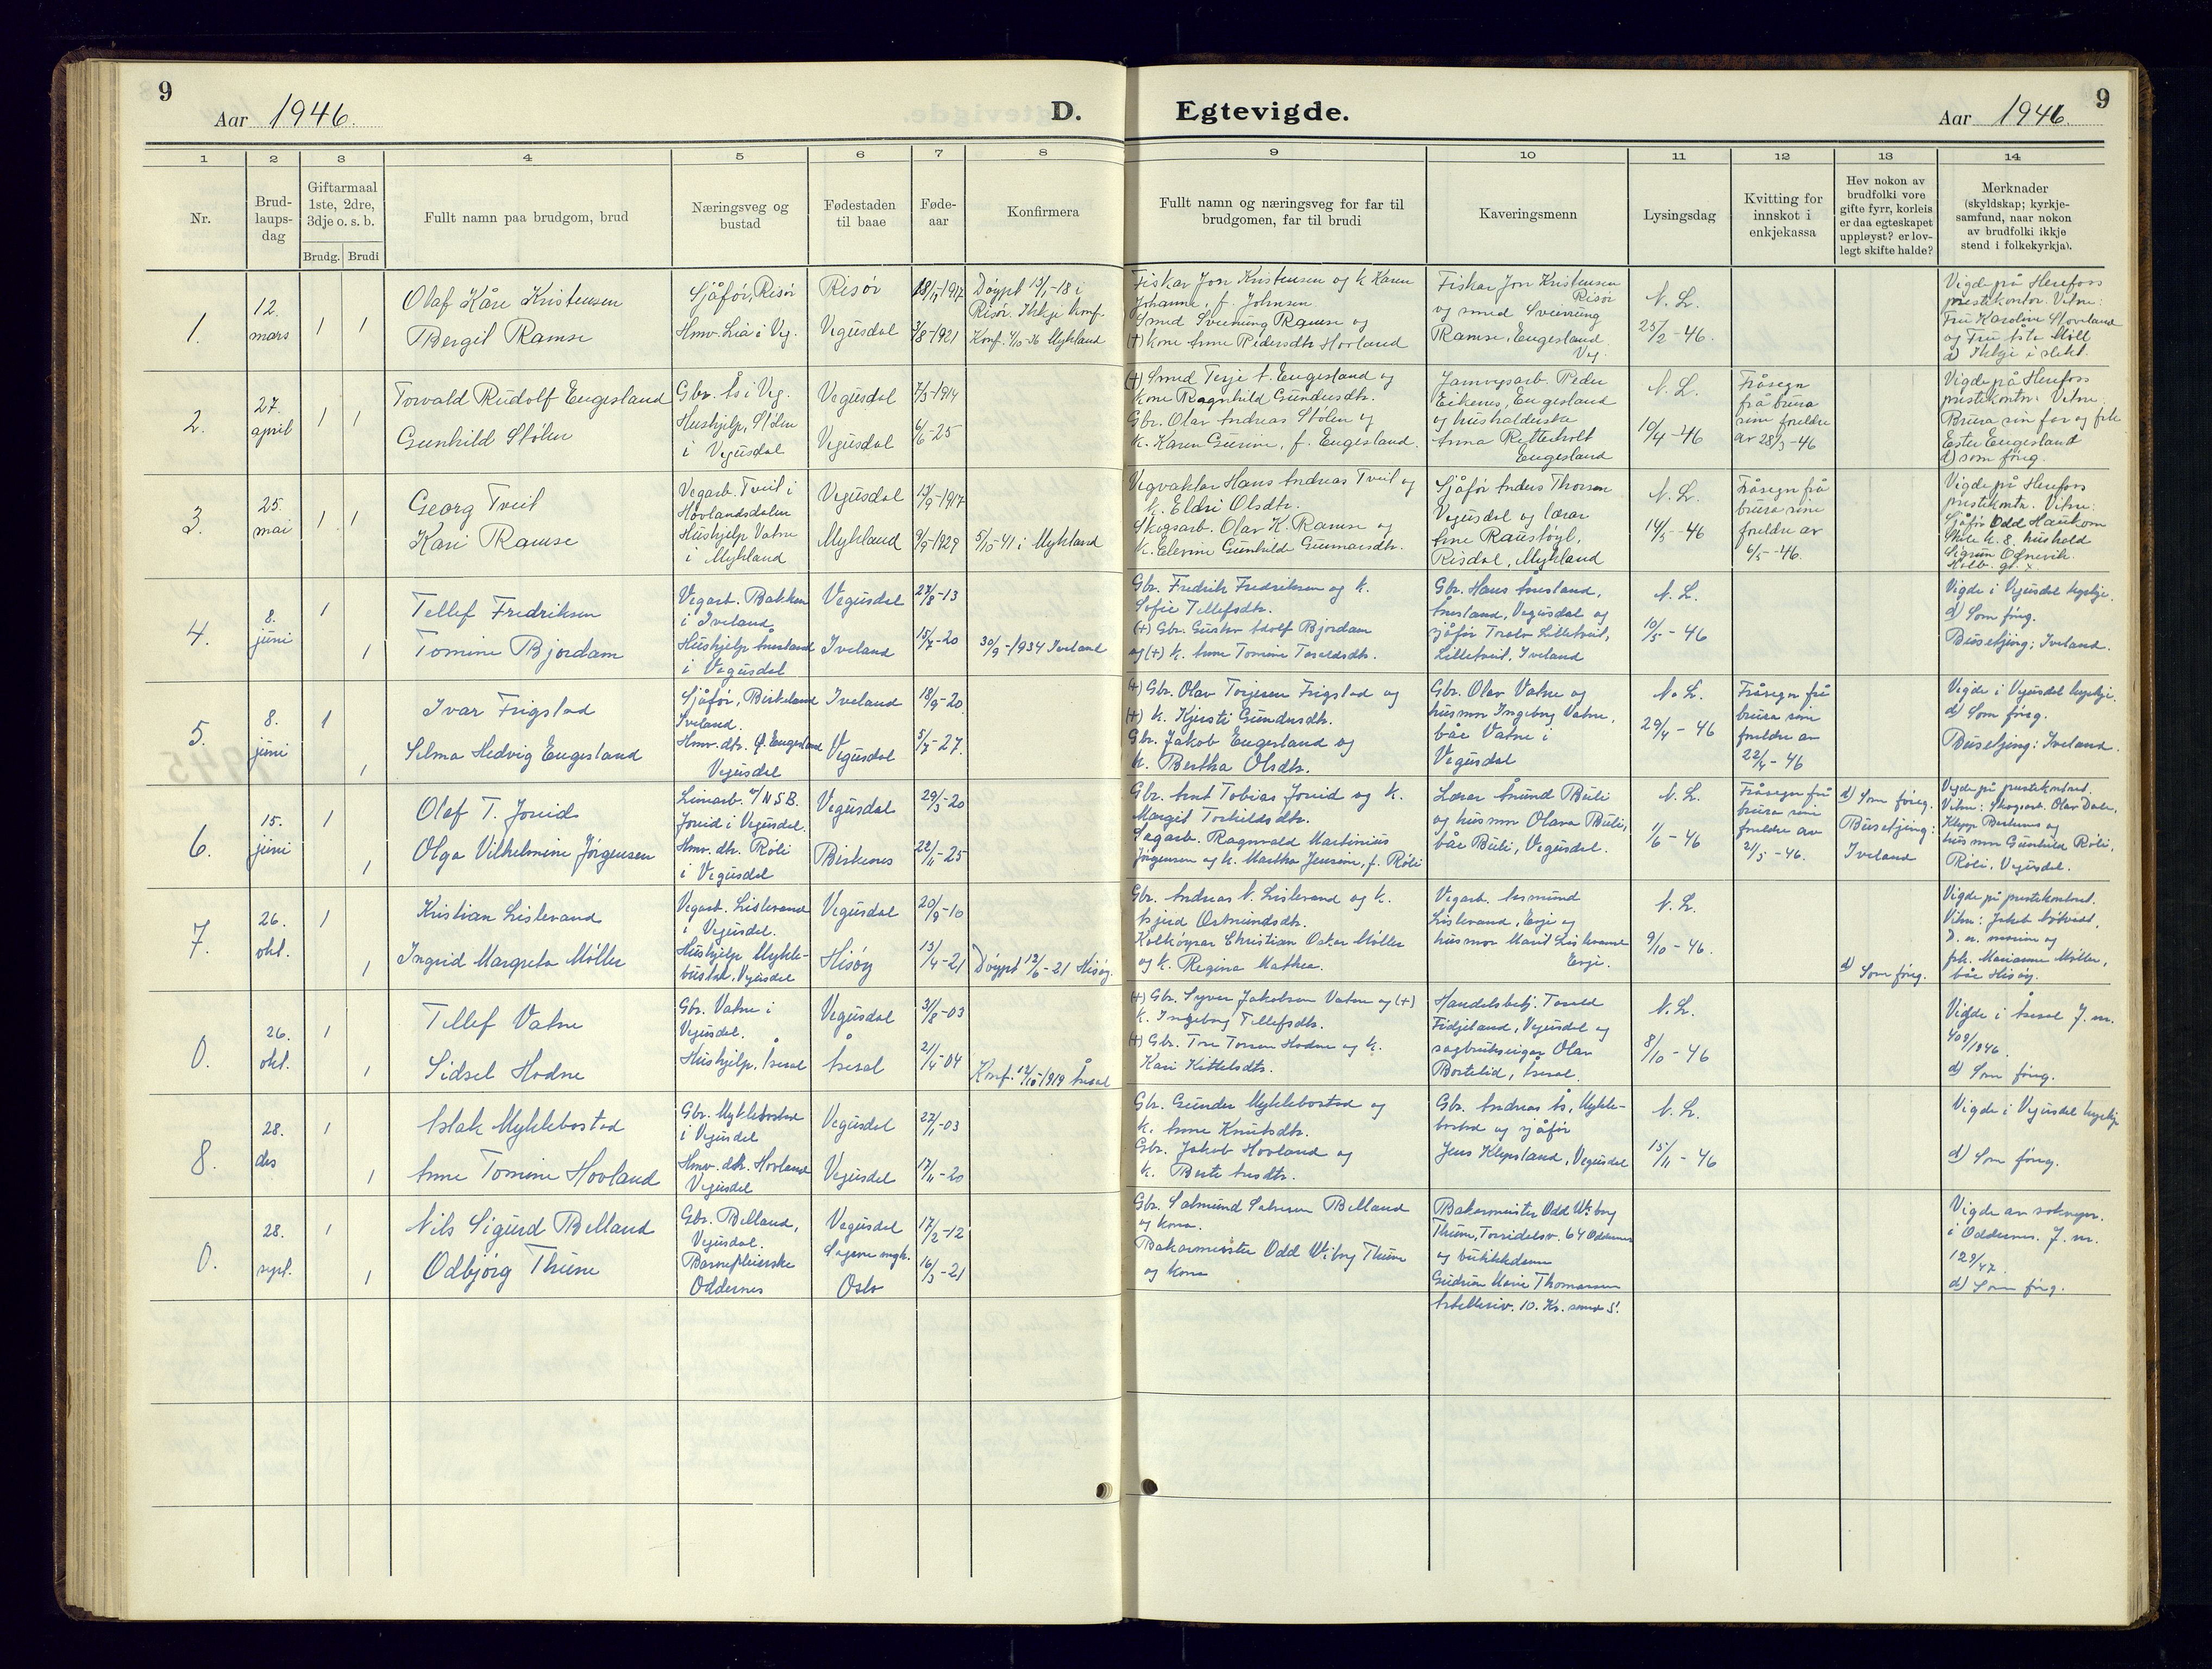 9
Aar 1946.
D.
Egtevigde.
Aar 1946.
9
1 2 3 4 5 6 7 8 9 10 11 12 13 14
Nr.
Brud-
laups-
dag
Giftarmaal
1ste, 2dre,
3dje o. s. b.
Brudg. Brudi
Fullt namn paa brudgom, brud
Næringsveg og
bustad
Fødestaden
til baae
Føde-
aar
Konfirmera
Fullt namn og næringsveg for far til
brudgomen, far til brudi
Kaveringsmenn
Lysingsdag
Kvitting for
innskot i
enkjekassa
Hev nokon av
brudfolki vore
gifte fyrr, korleis
er daa egteskapet
uppløyst? er lov-
legt skifte halde?
Merknader
(skyldskap; kyrkje-
samfund, naar nokon
av brudfolki ikkje
stend i folkekyrkja).
1.
12.
mars
1 1
Olaf Kåre Kristensen
Bergit Ramse
Sjåfør, Risør
Hmv. Lia i Veg.
Risør
Vegusdal
7/8-1921
Døypt 13/1-18 i
Risør. Ikkje konf.
Konf. 4/10-36 Mykland
Fiskar Jon Kristensen og k. Karen
Johanne, f. Johnsen
Smed Sveinung Ramse og
(+) kone Anne Pedersdtr. Hovland
Fiskar Jon Kristensen
Risør
og smed Sveinung
Ramse, Engesland
Veg.
N. L.
25/2-46.
Vigde på Herefoss
prestekontor. Vitne:
Fru Karoline Stoveland
og Fru Åsta Møll
d) Ikkje i slekt.
2.
27.
april
1 1
Torvald Rudolf Engesland
Gunhild Stølen
Gbr. Ås i Veg.
Hushjelp, Stølen
i Vegusdal
Vegusdal
Vegusdal
7/5-1914
6/6-25
(+) Smed Terje A. Engesland og
kone Ragnhild Gundersdtr.
Gbr. Olav Andreas Stølen og
k. Karen Gurine, f. Engesland.
Jarnvegsarb. Peder
Eikenes, Engesland
og hushalderske
Anna Retterholt
Engesland
N. L.
10/4-46
Fråsegn
frå brura
sine foreldre
av 28/3-46
Vigde på Herefoss
prestekontor. Vitne:
Brura sin far og frk.
Ester Engesland
d) som föreg.
3.
25.
mai
1 1
Georg Tveit
Kari Ramse
Vegarb. Tveit i
Hovlandsdalen
Hushjelp Vatne
i Mykland
Vegusdal
Mykland
13/9-1917
9/9-1929
5/10-41 i Mykland
Vegvaktar Hans Andreas Tveit og
k. Eldri Olsdtr.
Skogsarb. Olav K. Ramse og
k. Elevine Gunhilde Gunnarsdtr.
Sjåfør Anders Thorsen
Vegusdal og lærar
Arne Raustøyl,
Risdal, Mykland
N. L.
14/5-46
Fråsegn frå
brura sine
foreldre av
6/5-46.
Vigde på Herefoss
prestekontor. Vitne:
Sjåfør Odd Haukom
Sigrun Ognevik.
4.
8.
juni
1
1
Tellef Fredriksen
Tomine Bjordam
Vegarb. Bakken
i Iveland
Hushjelp Ånesland
i Vegusdal
Vegusdal
Iveland
27/8-13
15/7-20
30/9-1934 Iveland
Gbr. Fredrik Fredriksen og k.
Sofie Tellefsdtr.
(+) Gbr. Gustav Adolf Bjordam
og (+) k. Anne Tomine Taraldsdtr.
Gbr. Hans Ånesland,
Ånesland, Vegusdal og
sjåfør Torolv Lilletveit,
Lilletveit, Iveland
N. L.
10/5-46
Vigde i Vegusdal kyrkje.
d) Som föreg.
Busetjing: Iveland.
5.
8.
juni
1
1
Ivar Frigstad
Selma Hedvig Engesland
Sjåfør, Birkeland
Iveland.
Hmv. dtr. Ø. Engesland
Vegusdal
Iveland
Vegusdal
18/9-20.
5/7-27.
(+) Gbr. Olav Torjesen Frigstad og
(+) k. Kjersti Gundersdtr.
Gbr. Jakob Engesland og
k. Bertha Olsdtr.
Gbr. Olav Vatne og
husmor Ingeborg Vatne,
båe Vatne i
Vegusdal
N. L.
29/4-46
Fråsegn frå
brura sine
foreldre av
22/4-46
Vigde i Vegusdal kyrkje.
d) Som föreg.
Busetjing: Iveland.
6.
15.
juni
1
1
Olaf T. Joreid
Olga Vilhelmine Jørgensen
Linearb. v/NSB.
Joreid i Vegusdal.
Hmv. dtr. Røli
i Vegusdal
Vegusdal
Birkenes
29/3-20
22/11-25
Gbr. Arnt Tobias Joreid og k.
Margit Torkildsdtr.
Sagarb. Ragnvald Martinius
Jørgensen og k. Martha Jensine, f. Røli
Lærar Åmund Buli
og husmor Olava Buli,
båe Buli, Vegusdal.
N. L.
1/6-46
Fråsegn frå
brura sine
foreldre av
2/5-46.
d) Som föreg.
Busetjing:
Iveland
Vigde på prestekontoret.
Vitne: Skogsarb. Olav Dale,
Klepp Birkenes og
husmor Gunhild Røli,
Røli, Vegusdal.
7.
26.
okt.
1
1
Kristian Lislevand
Ingrid Margreta Møller
Vegarb. Lislevand
i Vegusdal.
Hushjelp Mykle-
bustad, Vegusdal
Vegusdal
Hisøy
20/9-10
13/4-21
Døypt 12/6-21 Hisøy.
Gbr. Andreas N. Lislevand og k.
Asjerd Osmundsdtr.
Kolkøyrar Christian Oskar Møller
og k. Regina Mathea.
Vegarb. Asmund
Lislevand, Evje og
husmor Marit Lislevand
Evje.
N. L.
9/10-46.
d) Som föreg.
Vigde på prestekontoret.
frk. Marianne Møller,
båe Hisøy.
0.
26.
okt.
1
1
Tellef Vatne
Sidsel Hodne
Gbr. Vatne i
Vegusdal.
Hushjelp, Åseral
Vegusdal
Åseral
31/8-03
21/4-04
Konf. 12/10-1919 Åseral
(+) Gbr. Syver Jakobsen Vatne og (+)
k. Ingeborg Tellefsdtr.
(+) Gbr. Tore Torson Hodne og k.
Kari Kittelsdtr.
Handelsbetj. Tarald
Fidjeland, Vegusdal og
sagbrukseigar Olav
Bortelid, Åseral.
N. L.
8/10-46
Vigde i Åseral J. nr.
409/1946.
d) Som föreg.
8.
28.
des
1
1
Aslak Myklebostad
Anne Tomine Hovland
Gbr. Myklebostad
i Vegusdal
Hmv. dtr. Hovland
Vegusdal
Vegusdal
Vegusdal
27/1-03
17/11-20
Gbr. Gunder Myklebostad og
k. Anne Knutsdtr.
Gbr. Jakob Hovland og
k. Berte Åasdtr.
Gbr. Andreas Ås, Mykle-
bostad og sjåfør
Jens Klepsland, Vegusdal
N. L.
15/11-46
Vigde i Vegusdal kyrkje
d) Som föreg.
0.
28.
sept.
1
1
Nils Sigurd Belland
Odbjørg Thune
Gbr. Belland,
Vegusdal.
Barnepleierske
Oddernes
Vegusdal
Sagene mgh.
Oslo
17/2-12
16/3-21
Gbr. Salmund Salvesen Belland
og kona.
Bakarmeister Odd Wiborg Thune
og kona
Bakarmeister Odd Wiborg
Thune, Torridalsv. 64 Oddernes
og butikkdame
Gudrun Marie Thomassen
10. Kr. sand S.
Vigde av sokнepr.
i Oddernes. J. nr.
129/47.
d) Som föreg.